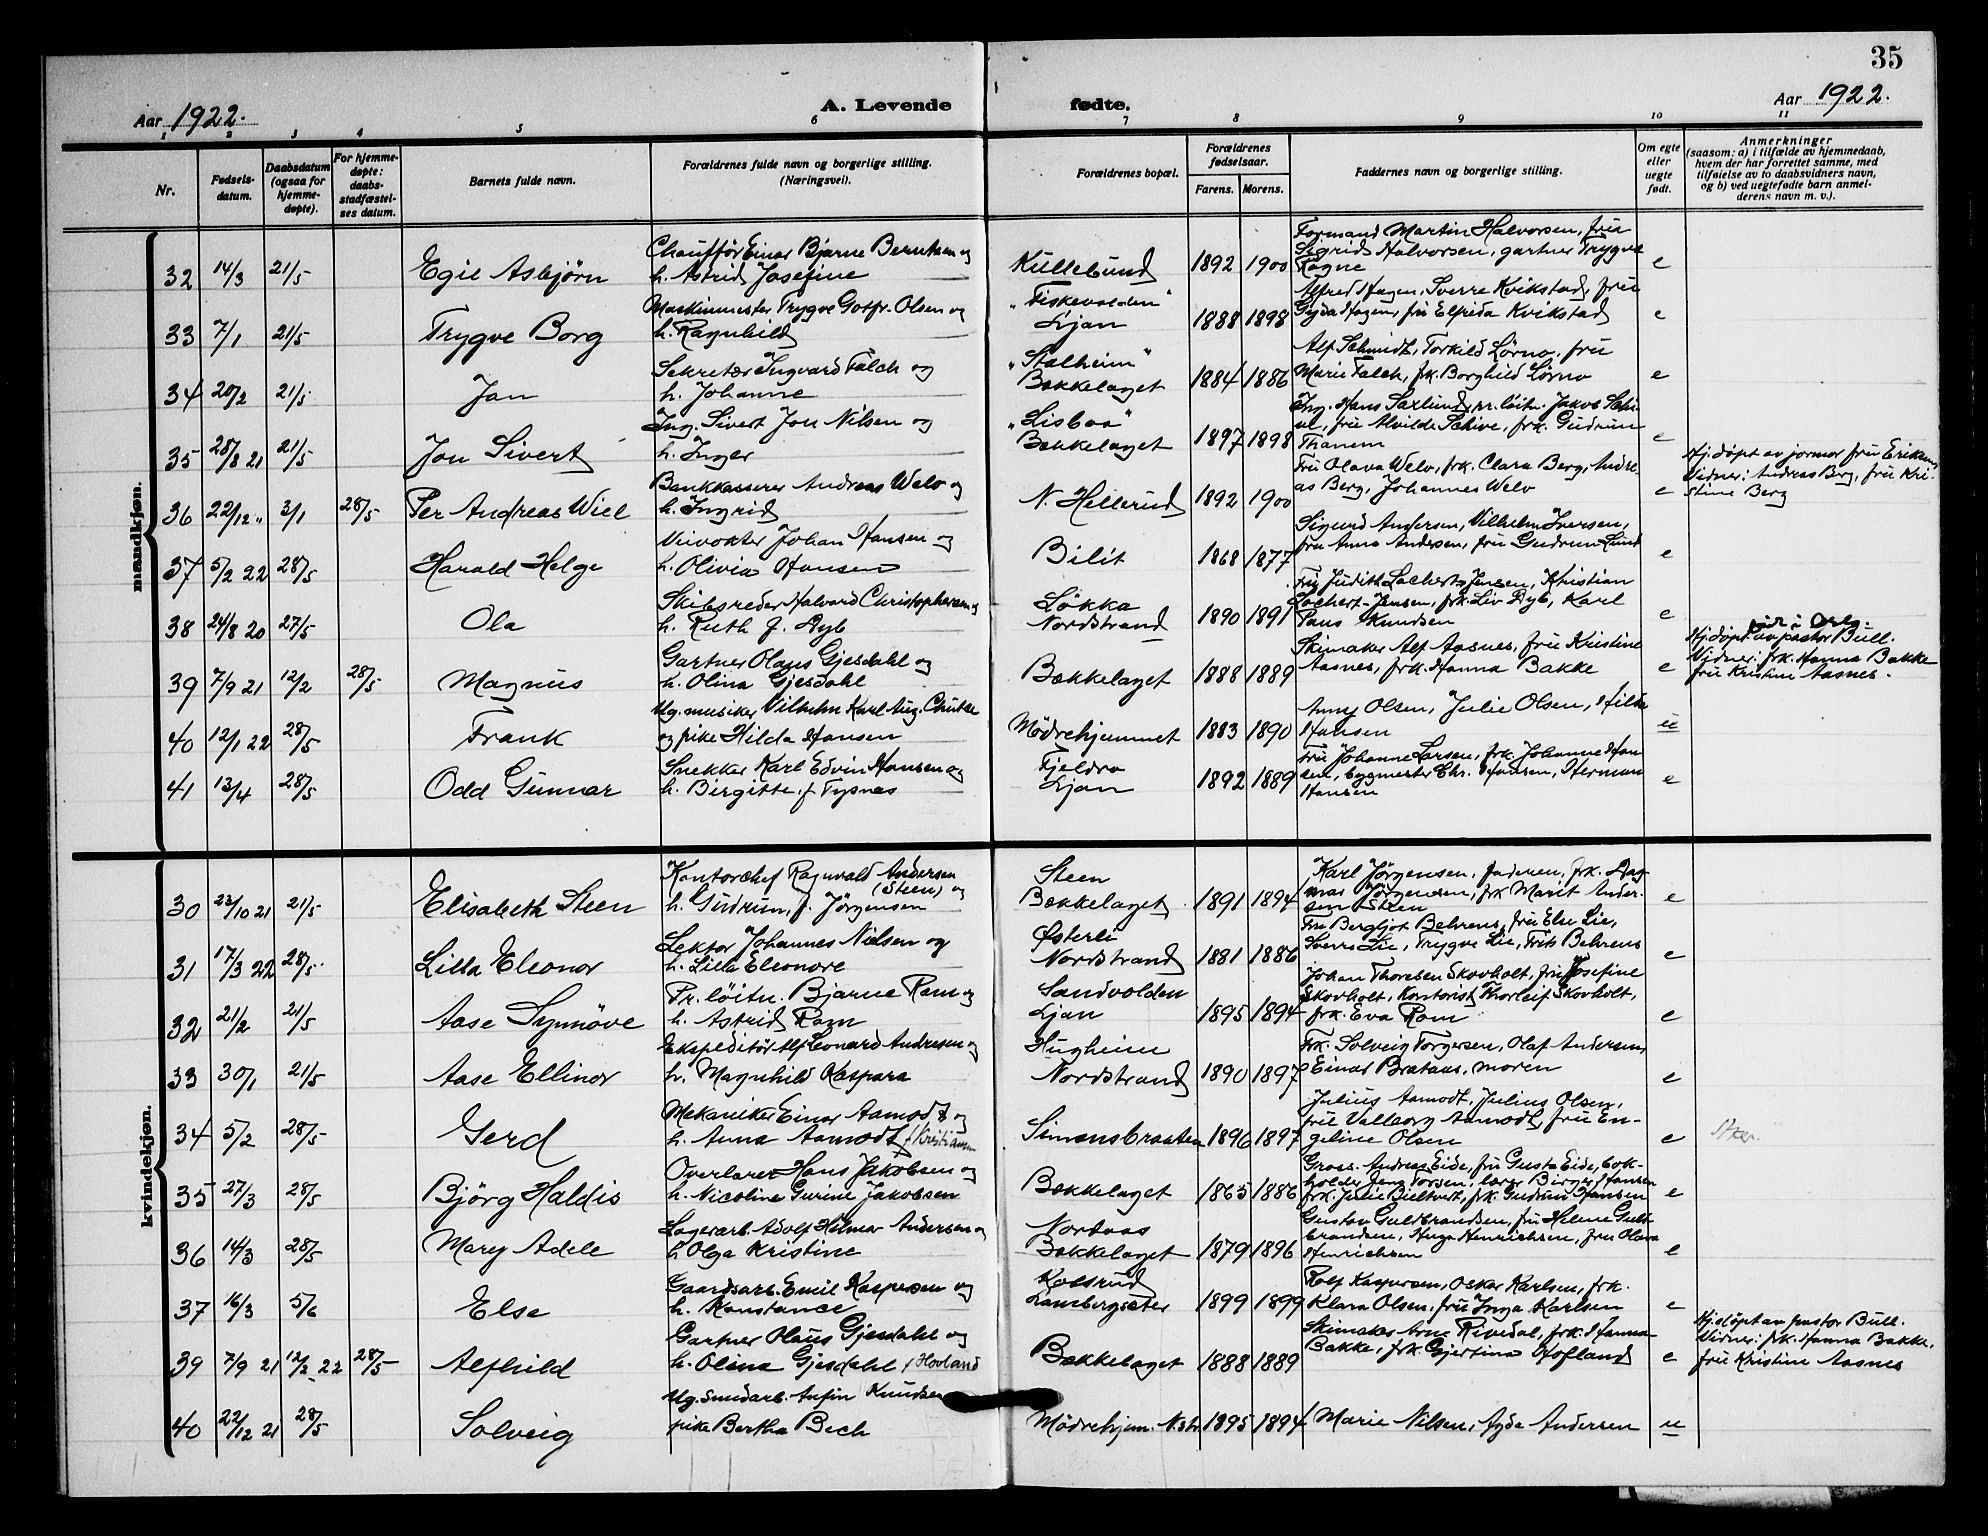 35
Aar 1922.
A. Levende fødte.
Aar 1922.
1 2 3 4 5 6 7 8 9 10 11
Nr.
Fødsels-
datum.
Daabsdatum
(ogsaa for
hjemme-
døpte).
For hjemme-
døpte:
daabs-
stadfæstel-
ses datum.
Barnets fulde navn.
Forældrenes fulde navn og borgerlige stilling.
(Næringsvei).
Forældrenes bopæl.
Forældrenes
fødselsaar.
Farens. Morens.
Faddernes navn og borgerlige stilling.
Om egte
eller
uegte
født.
Anmerkninger
(saasom: a) i tilfælde av hjemmedaab,
hvem der har forrettet samme, med
tilføielse av to daabsvidners navn,
og b) ved uegtefødte barn anmel-
derens navn m. v.).
mandkjøn.
32 14/3 21/5 Egil Asbjörn
Chaufför Einar Bjarne Berntsen og
h. Astrid Josefine
Kullebund 1892 1900
Formand Martin Halvorsen, frue
Sigrid Halvorsen, gartner Trygve
Ragne e
33 7/1 21/5 Trygve Borg
Maskinmester Trygve Gotfr. Olsen og
h. Ragnhild
"Fiskevolden"
Ljan 1888 1898
Alfred Hagen, Sverre Kvikstad, frue
Gyda Hagen, fru Elfrida Kvikstad e
34 20/2 21/5 Jan
Sekretær Ingvard Falch og
h. Johanne
"Stalheim"
Bækkelaget 1884 1886
Alf Schmidt, Torkild Lörno, fru
Marie Falch, frk. Borghild Lörno e
35 28/8 21 21/5 Jon Sivert
Ing. Sivert Jon Nilsen og
h. Inger
"Lisboa"
Bækkelaget 1897 1898
Ing. Hans Saxlund, pr. löitn. Jakob Schi-
ve, fru Alvilde Schive, frk. Gudrun
Thanem e
36 22/12 " 3/1 28/5 Per Andreas Wiel
Bankkasserer Andreas Welo og
h. Ingrid
N. Hellerud 1892 1900
Fru Olava Welo, frk. Clara Berg, Andre-
as Berg, Johannes Welo e
Hj.döpt av jormor fru Eriksen
Vidner: Andreas Berg, fru Kri-
stine Berg
37 5/2 22 28/5 Harald Helge
Veivokter Johan Hansen og
h. Olivia Hansen
Bilit 1868 1877
Sigurd Andersen, Vilhelm Iversen,
fru Anna Andersen, fru Gudrun Lund e
38 24/8 20 27/5 Ola
Skibsreder Halvard Christophersen og
h. Ruth f. Dyb
Løkka
Nordstrand 1890 1891
Fru Judith Lochert-Jensen, Kristian
Lochert-Jensen, frk. Liv Dyb, Karl
Paus Knudsen e
39 7/9 21 12/2 28/5 Magnus
Gartner Olaus Gjesdahl og
h. Olina Gjesdahl
Bækkelaget 1888 1889
Skimaker Alf Aasnes, fru Kristine
Aasnes, frk. Hanna Bakke e
Hj.döpt av pastor Bull.
Vidner: frk. Hanna Bakke
fru Kristine Aasnes.
40 12/1 22 28/5 Frank
Ug. musiker Vilhelm Karl Aug.
og pike Hilda Hansen
Mödrehjemmet 1883 1890
Anny Olsen, Julie Olsen, Hilda
Hansen u
41 13/4 28/5 Odd Gunnar
Snekker Karl Edvin Hansen og
h. Birgitte, f. Tysnes
Fjeldro
Ljan 1892 1889
Fru Johanne Larsen, frk. Johanne Han-
sen, bygmester Chr. Hansen, Herman
Hansen e
kvindekjøn.
30 23/10 21 21/5 Elisabeth Steen
Kontorchef Ragnvald Andersen
(Steen) og
h. Gudrun, f. Jörgensen
Steen
Bækkelaget 1891 1894
Karl Jörgensen, faderen, frk. Dag-
mar Jörgensen, frk Marit Ander-
sen Steen e
31 17/3 22 28/5 Lilla Eleonor
Lektor Johannes Nielsen og
h. Lilla Eleonore
Østerli
Nordstrand 1881 1886
Fru Bergljot Behrens, fru Else Lie,
Sverre Lie, Trygve Lie, Frits Behrens e
32 21/2 21/5 Aase Synnöve
Pr. löitn. Bjarne Ram og
h. Astrid Ram
Sandvolden
Ljan 1895 1894
Johan Thoresen Skovholt, fru Josefine
Skovholt, Kontorist Thorleif Skovholt,
frk. Eva Ram e
33 30/1 21/5 Aase Ellinor
Ekspeditör Alf Leonard Andresen og
h. Magnhild Kaspara
Hugheim
Nordstrand 1890 1897
Frk. Solveig Torgersen, Olaf Andersen,
Einar Brataas, moren e
34 5/2 28/5 Gerd
Mekaniker Einar Aamodt og
h. Anna Aamodt f. Kristiansen
Simensbraaten 1896 1897
Julius Aamodt, Julius Olsen,
fru Valborg Aamodt, fru En-
geline Olsen e
35 27/3 28/5 Björg Haldis
Overlærer Hans Jakobsen og
h. Nicoline Gurine Jakobsen
Bækkelaget 1865 1886
Gross. Andreas Eide, fru Gusta Eide, bok-
holder Jens Torsen, lærer Birger Hansen
frk. Julie Bieltvedt, frk. Gudrun Hansen e
36 14/3 28/5 Mary Adele
Lagerarb. Adolf Hilmar Andersen og
h. Olga Kristine
Nordaas
Bækkelaget 1879 1896
Gustav Guldbrandsen, fru Helene Guld-
brandsen, Hugo Henrichsen, fru Olava
Henrichsen e
37 16/3 5/6 Else
Gaardsarb. Emil Kaspersen og
h. Konstance
Kolsrud
Lambergseter 1899 1899
Rolf Kaspersen, Oskar Karlsen, frk.
Klara Olsen, fru Inga Karlsen e
39 7/9 21 12/2 22 28/5 Alfhild
Gartner Olaus Gjesdahl og
h. Olina Gjesdahl f Hovland
Bækkelaget 1888 1889
Skimaker Arne Rivedal, frk. Hanna
Bakke, frk. Gjertina Hofland e
Hj.döpt av pastor Bull.
Vidner: frk. Hanna Bakke,
fru Kristine Aasnes
40 22/12 21 28/5 Solveig
Ug. smedarb. Anfin Knudsen
pike Bertha Bech
Mödrehjem. N.str. 1895 1894
Marie Nilsen, Agda Andersen u